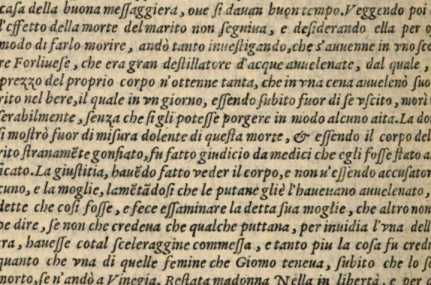 casa della buona messaggiera, oue si dauan buon tempo. Veggendo poi c
l'effetto della morte del marito non seguiua, e desiderando ella per o
modo di farlo morire, andò tanto inuestigando, che s'auuenne in vno sco
re Forliuese, che era gran destillatore d'acque auuelenate, dal quale,
prezzo del proprio corpo n'ottenne tanta, che in vna cena auuelenò suo
rito nel bere, il quale in vn giorno, essendo subito fuor di se vscito, morì
serabilmente, senza che si gli potesse porgere in modo alcuno aita. La do
si mostrò fuor di misura dolente di questa morte, & essendo il corpo del
rito stranamēte gonfiato, fu fatto giudicio da medici che egli fosse stato a
icato. La giustitia, hauēdo fatto veder il corpo, e non u'essendo accusator
cuno, e la moglie, lamētādosi che le putane gliè l'haueuano auuelenato,
dette che così fosse, e fece essaminare la detta sua moglie, che altro non
pe dire, se non che credeua che qualche puttana, per inuidia l'vna dell
ra, hauesse cotal sceleraggine commessa, e tanto piu la cosa fu cred
quanto che vna di quelle femine che Giomo teneua, subito che lo s
morto, se n'andò a Vinegia. Restata madonna Nella in libertà, e per